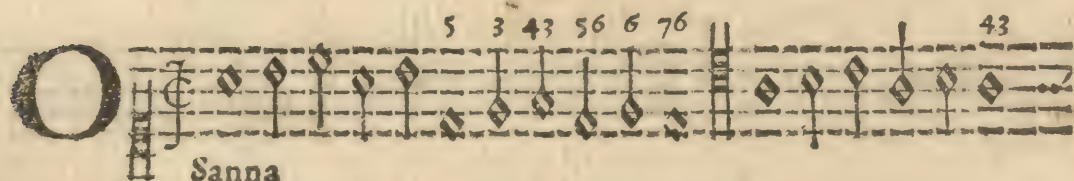 5 3 43 56 6 76 43
O
Sanna